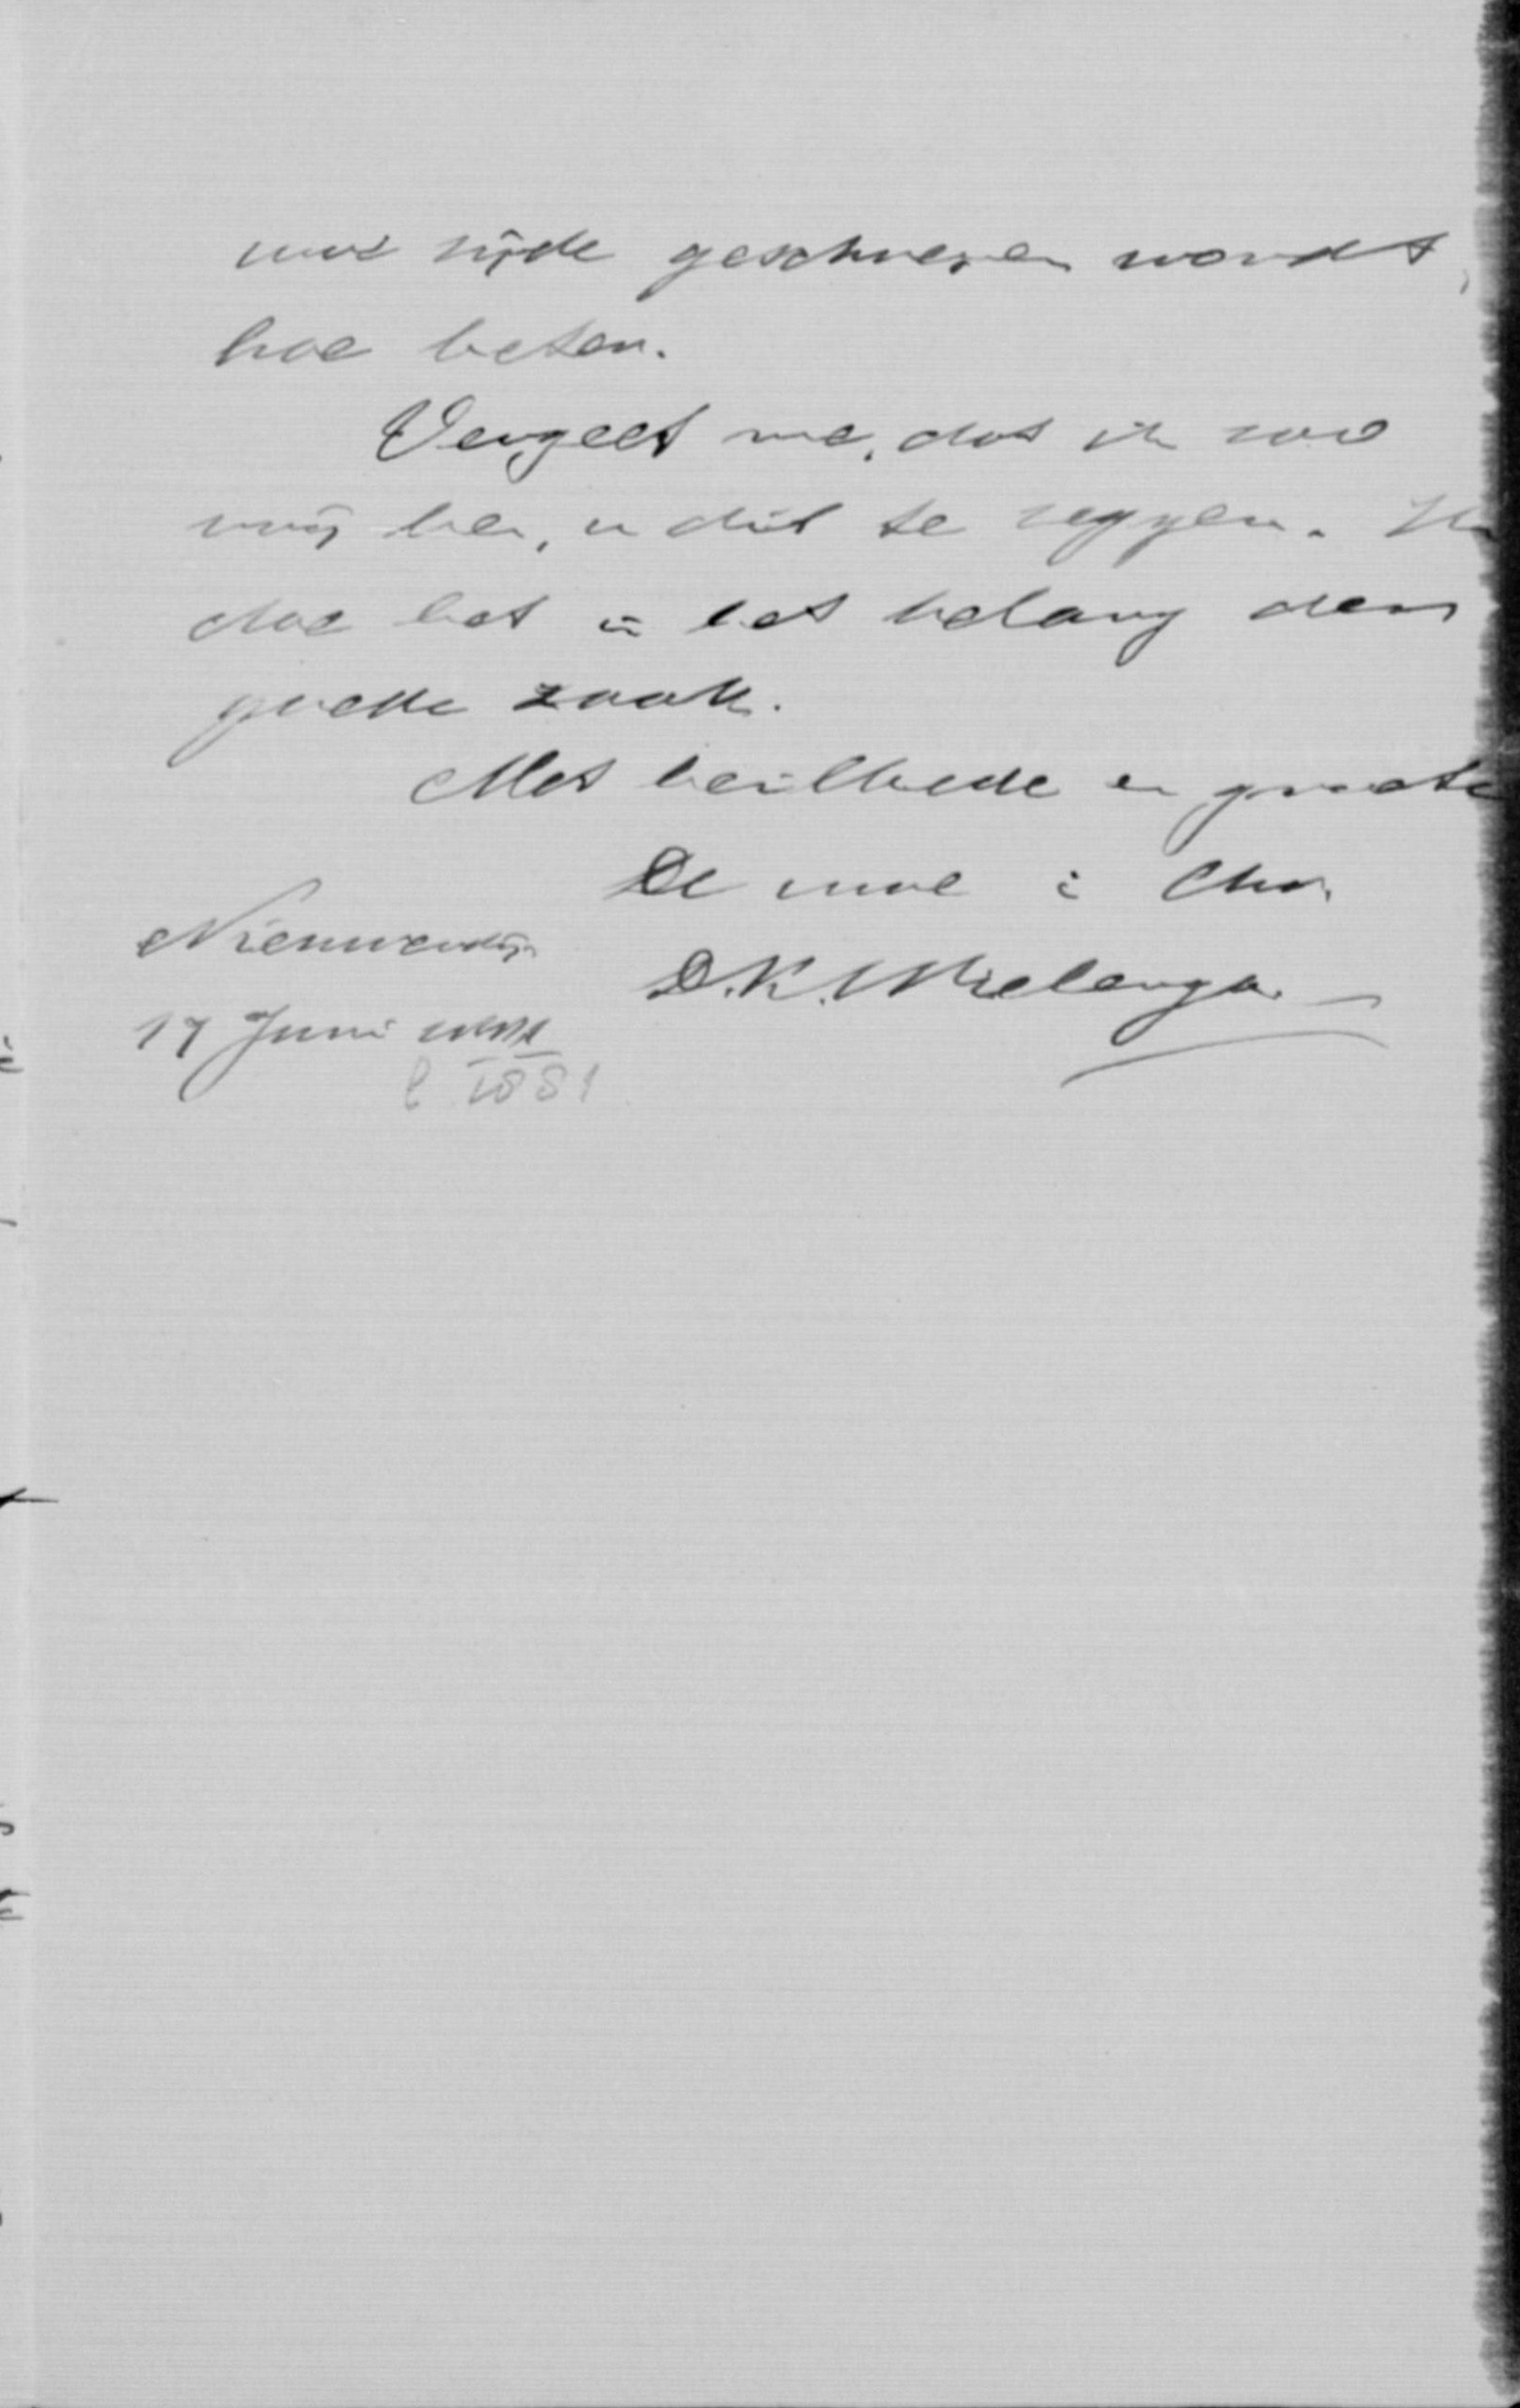 zijde geschreven wordt,
hoe beter.
Vergeef me, dat ik zoo
vrij ben, u dit te zeggen. Ik
doe het in het belang der
goede zaak.
Met heilbede en groete
De uwe in Chr.
D.K. Wielenga.
Nieuwendijk
17 Juni